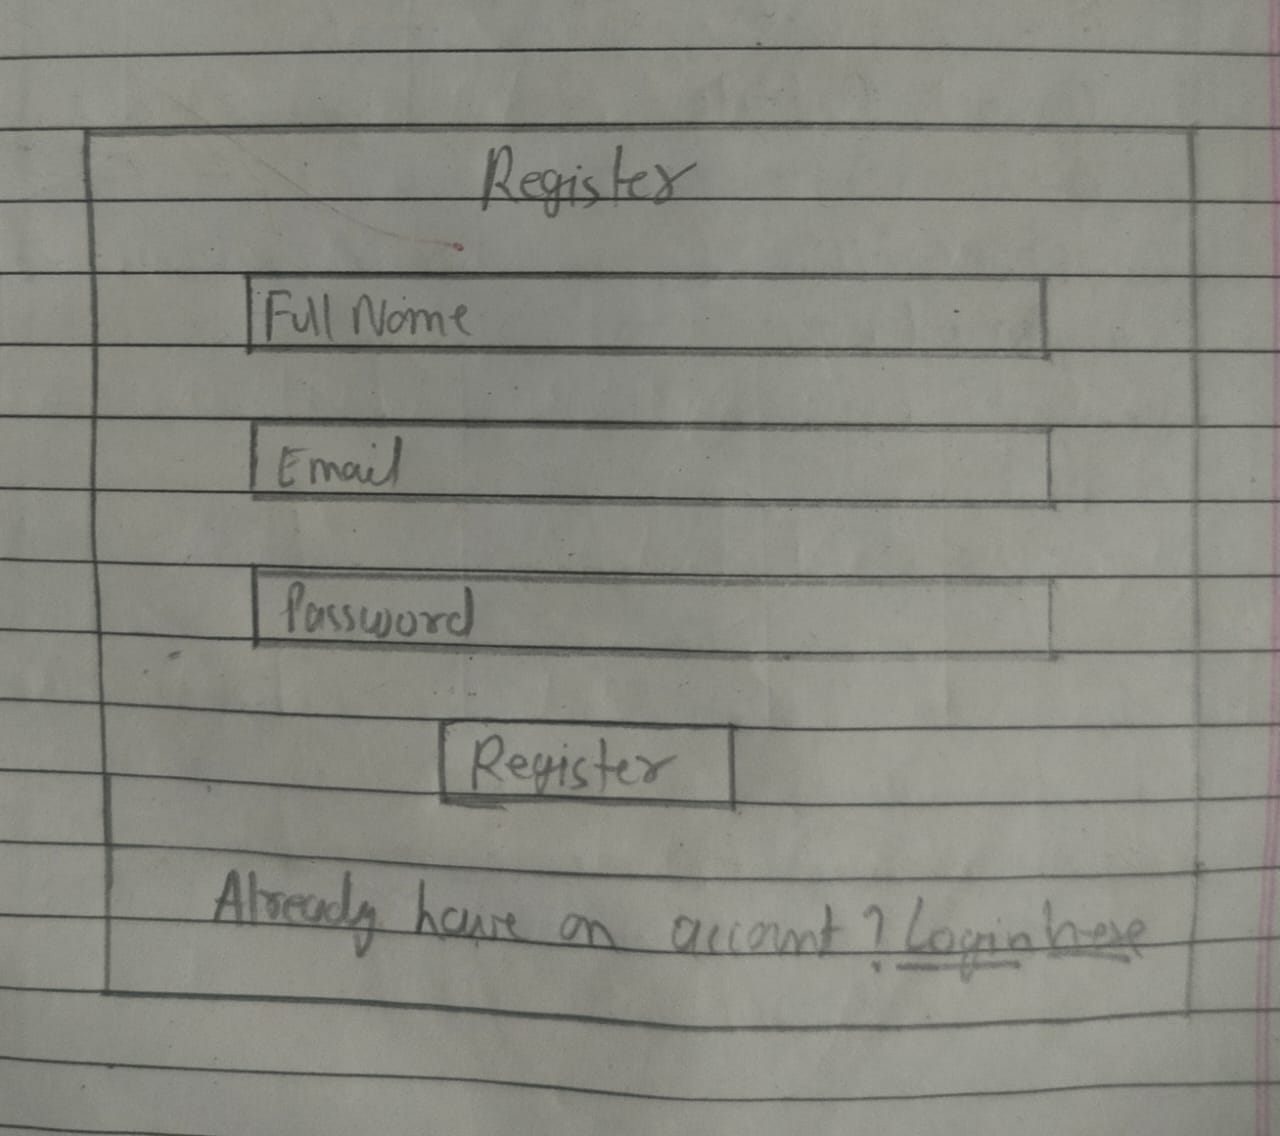 Register
Full Name
Email
Password
Register
Already have an account? Login here